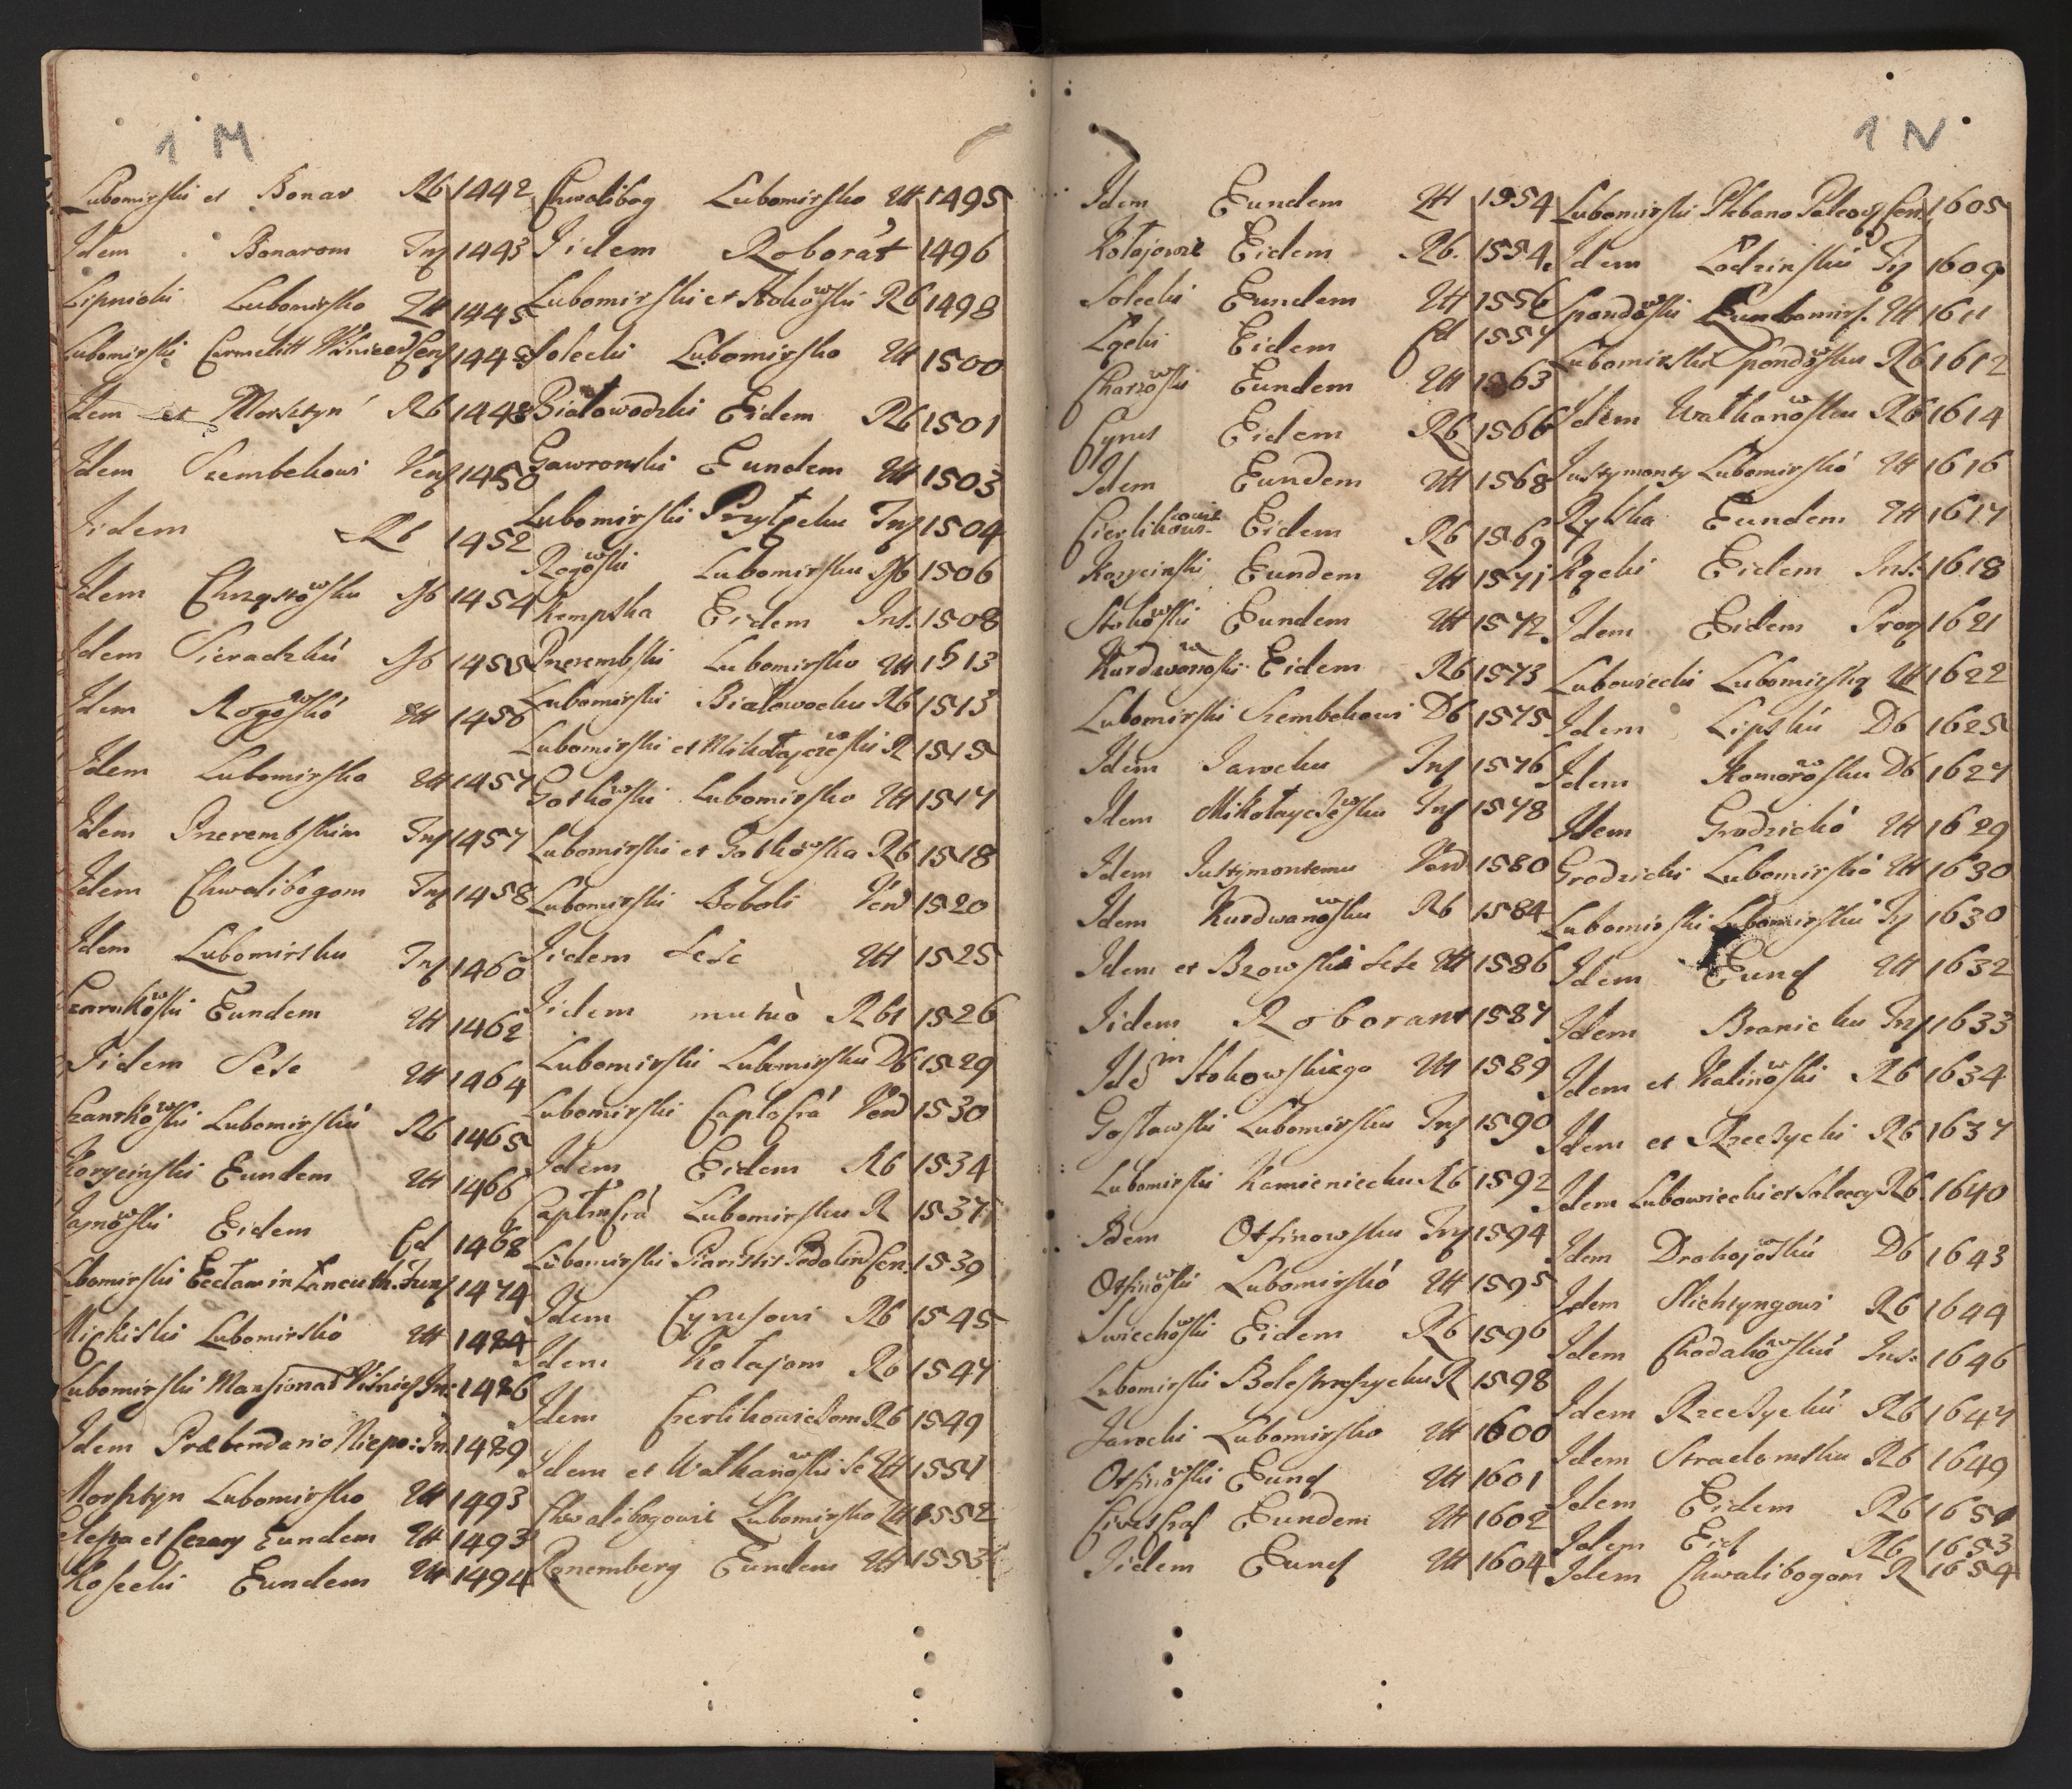 1 M
Lubomirski et Bonar Rb 1442
Idem Bonarom Ins 1443
Lipnicki Lubomirsko Utt 1445
Lubomirski Carmelitt Wisnicen Cens 144
Idem et Morsztyn Rb 1448
Idem Szembekowi Vens 1450
Iidem Rb 1452
Idem Chrząstowsku 1454
Idem Sieradzkú 1455
Idem Rogowskó Utt 1456
Idem Lubomirsko Utt 1457
Idem Przerembskim Ins 1457
Idem Chwalibogom Ins 1458
Idem Lubomirsku Ins 1460
Czarnkowski Eundem Utt 1462
Iidem Sese Utt 1464
Czarnkowski Lubomirskú Rb 1465
Koryciński Eundem Utt 1466
Jasnowski Eidem Cd 1468
Lubomirski Ecclae in Lancuth. Funs 1474
Mickiski Lubomirskó Utt 1484
Lubomirski Mansionar Wisnies In: 1486
Idem Præbendario Niepo: In. 1489
Morsztyn Lubomirsko Utt 1493
et Eundem Utt 1493
Kosecki Eundem Utt 1494
Chwalibog Lubomirsko Utt 1495
Iidem Roborát 1496
Lubomirski et Stokowski Rb 1498
Solecki Lubomirsko Utt 1500
Białowodzki Eidem Rb 1501
Gawronski Eundem Utt 1503
Lubomirski Przyłęcku Ins 1504
Rogowski Lubomirsku 1506
Kempska Eidem Ins: 1508
Przerembski Lubomirsko Utt 1513
Lubomirski Białowocku Rb 1513
Lubomirski et Mikołajczewski R 1515
Gotkowski Lubomirsko Utt 1517
Lubomirski et Gotkowska Rb 1518
Lubomirski Boboli Vend 1520
Iidem Sese Utt 1525
Iidem mutuò Rbt 1526
Lubomirski Lubomirsku Db 1529
Lubomirski Caplo Crá Vend 1530
Idem Eidem Rb 1534
Captm Crá Lubomirsku R 1537
Lubomirski Piaristis Podolin Cen. 1539
Idem Cyrusowi Rb 1545
Idem Kołajom Rb 1547
Idem Czerlikowiczom Rb 1549
Idem et Walkanowski Se Utt 1551
Chwalibogowic Lubomirsko Utt 1552
Ronemberg Eundem Utt 1553
1 N
Idem Eundem Utt 1554
Kołajowic Eidem Rb. 1554
Solecki Eundem Utt 1556
Łącki Eidem Cd 1557
Charzowski Eundem Utt 1563
Cyrus Eidem Rb 1566
Idem Eundem Utt 1568
Cierlikowic Eidem Rb 1569
Koryciński Eundem Utt 1571
Stokowski Eundem Utt 1572
Kurdwanowski Eidem Rb 1573
Lubomirski Szembekowi Db 1575
Idem Jarocku Ins 1576
Idem Mikołayczewsku Ins 1578
Idem Justymontemu Vend 1580
Idem Kurdwanowsku Rb 1584
Idem et Brzowski Sese Utt 1586
Iidem Roborant 1587
Idem Stokowskiego Utt 1589
Gosławski Lubomirsku Ins 1590
Lubomirski Kamieniecku Rb 1592
Idem Otfinowsku Ins 1594
Otfinowski Lubomirskó Utt 1595
Swiechowski Eidem Rb 1596
Lubomirski Bolestraszycku R 1598
Jarocki Lubomirsko Utt 1600
Otfinowski Eund Utt 1601
Cives Crac Eundem Utt 1602
Iidem Eund Utt 1604
Lubomirski Plebano Paleog Cen. 1605
Idem Lodzinskú Ins 1609
Spandowski Lubomirs. Utt 1611
Lubomirski Spandowsku Rb 1612
Idem Walkanowsku Rb 1614
Justymonty Lubomirskó Utt 1616
Rylska Eundem Utt 1617
Łącki Eidem Ins: 1618
Idem Eidem Prog 1621
Lubowiecki Lubomirską Utt 1622
Idem Lipskú Db 1625
Idem Komorowsku Db 1627
Idem Grodzickó Utt 1629
Grodzicki Lubomirskó Utt 1630
Lubomirski Lubomirskú Ins 1630
Idem Eund Utt 1632
Idem Branicku Ins 1633
Idem et Kalinowski Rb 1634
Idem et Rzeczycki Rb 1637
Idem Lubowiecki et Soleccy Rb. 1640
Idem Drohojowskú Db 1643
Idem Slichtyngowi Rb 1644
Idem Chodakowskú Ins: 1646
Idem Rzeczyckú Rb 1647
Idem Stradomsku Rb 1649
Idem Eidem Rb 1651
Idem Eid Rb 1653
Idem Chwalibogom R 1654